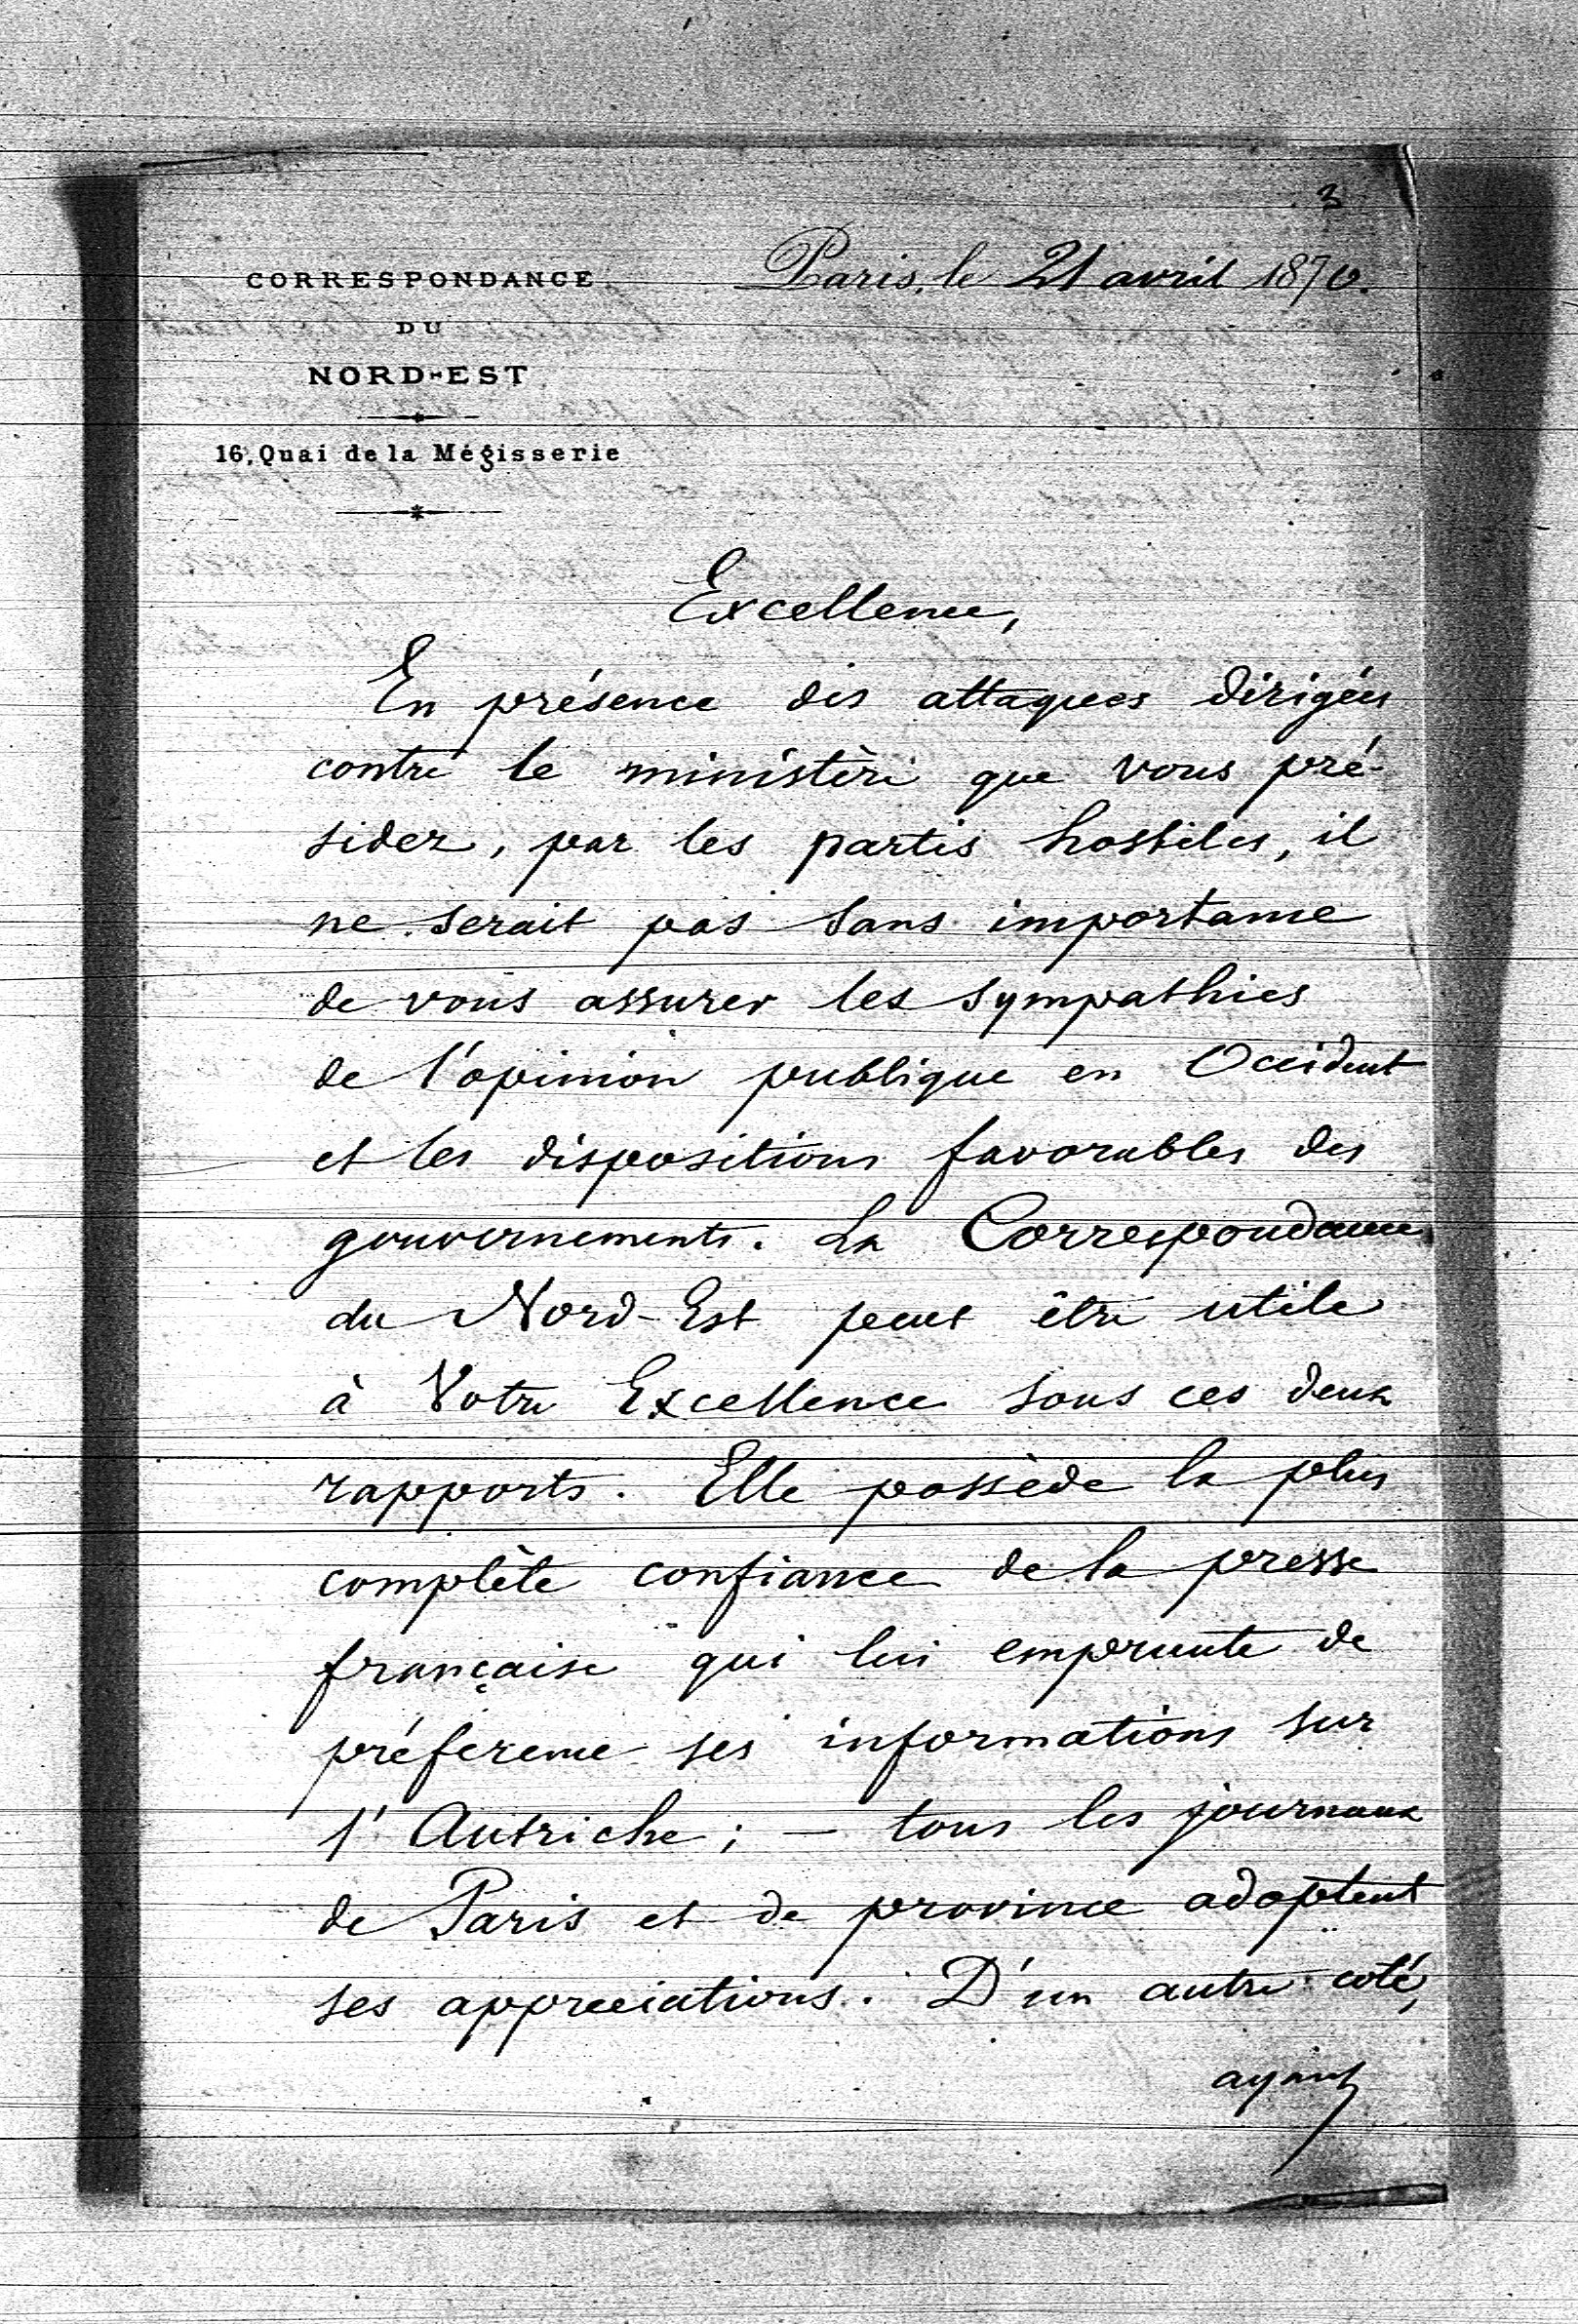 3
CORRESPONDANCE
DU
NORD-EST
16, Quai de la Mégisserie
Paris, le 21 avril 1870.
Excellence,
En présence des attaques dirigées
contre le ministère que vous pré-
sidez, par les partis hostiles, il
ne serait pas sans importance
de vous assurer les sympathies
de l'opinion publique en Occident
et les dispositions favorables des
gouvernements. La Correspondance
du Nord-Est peut être utile
à Votre Excellence sous ces deux
rapports. Elle possède la plus
complète confiance de la presse
française qui lui emprunte de
préférence ses informations sur
l'Autriche ; — tous les journaux
de Paris et de province adoptent
ses appreciations. D'un autre coté,
ayant